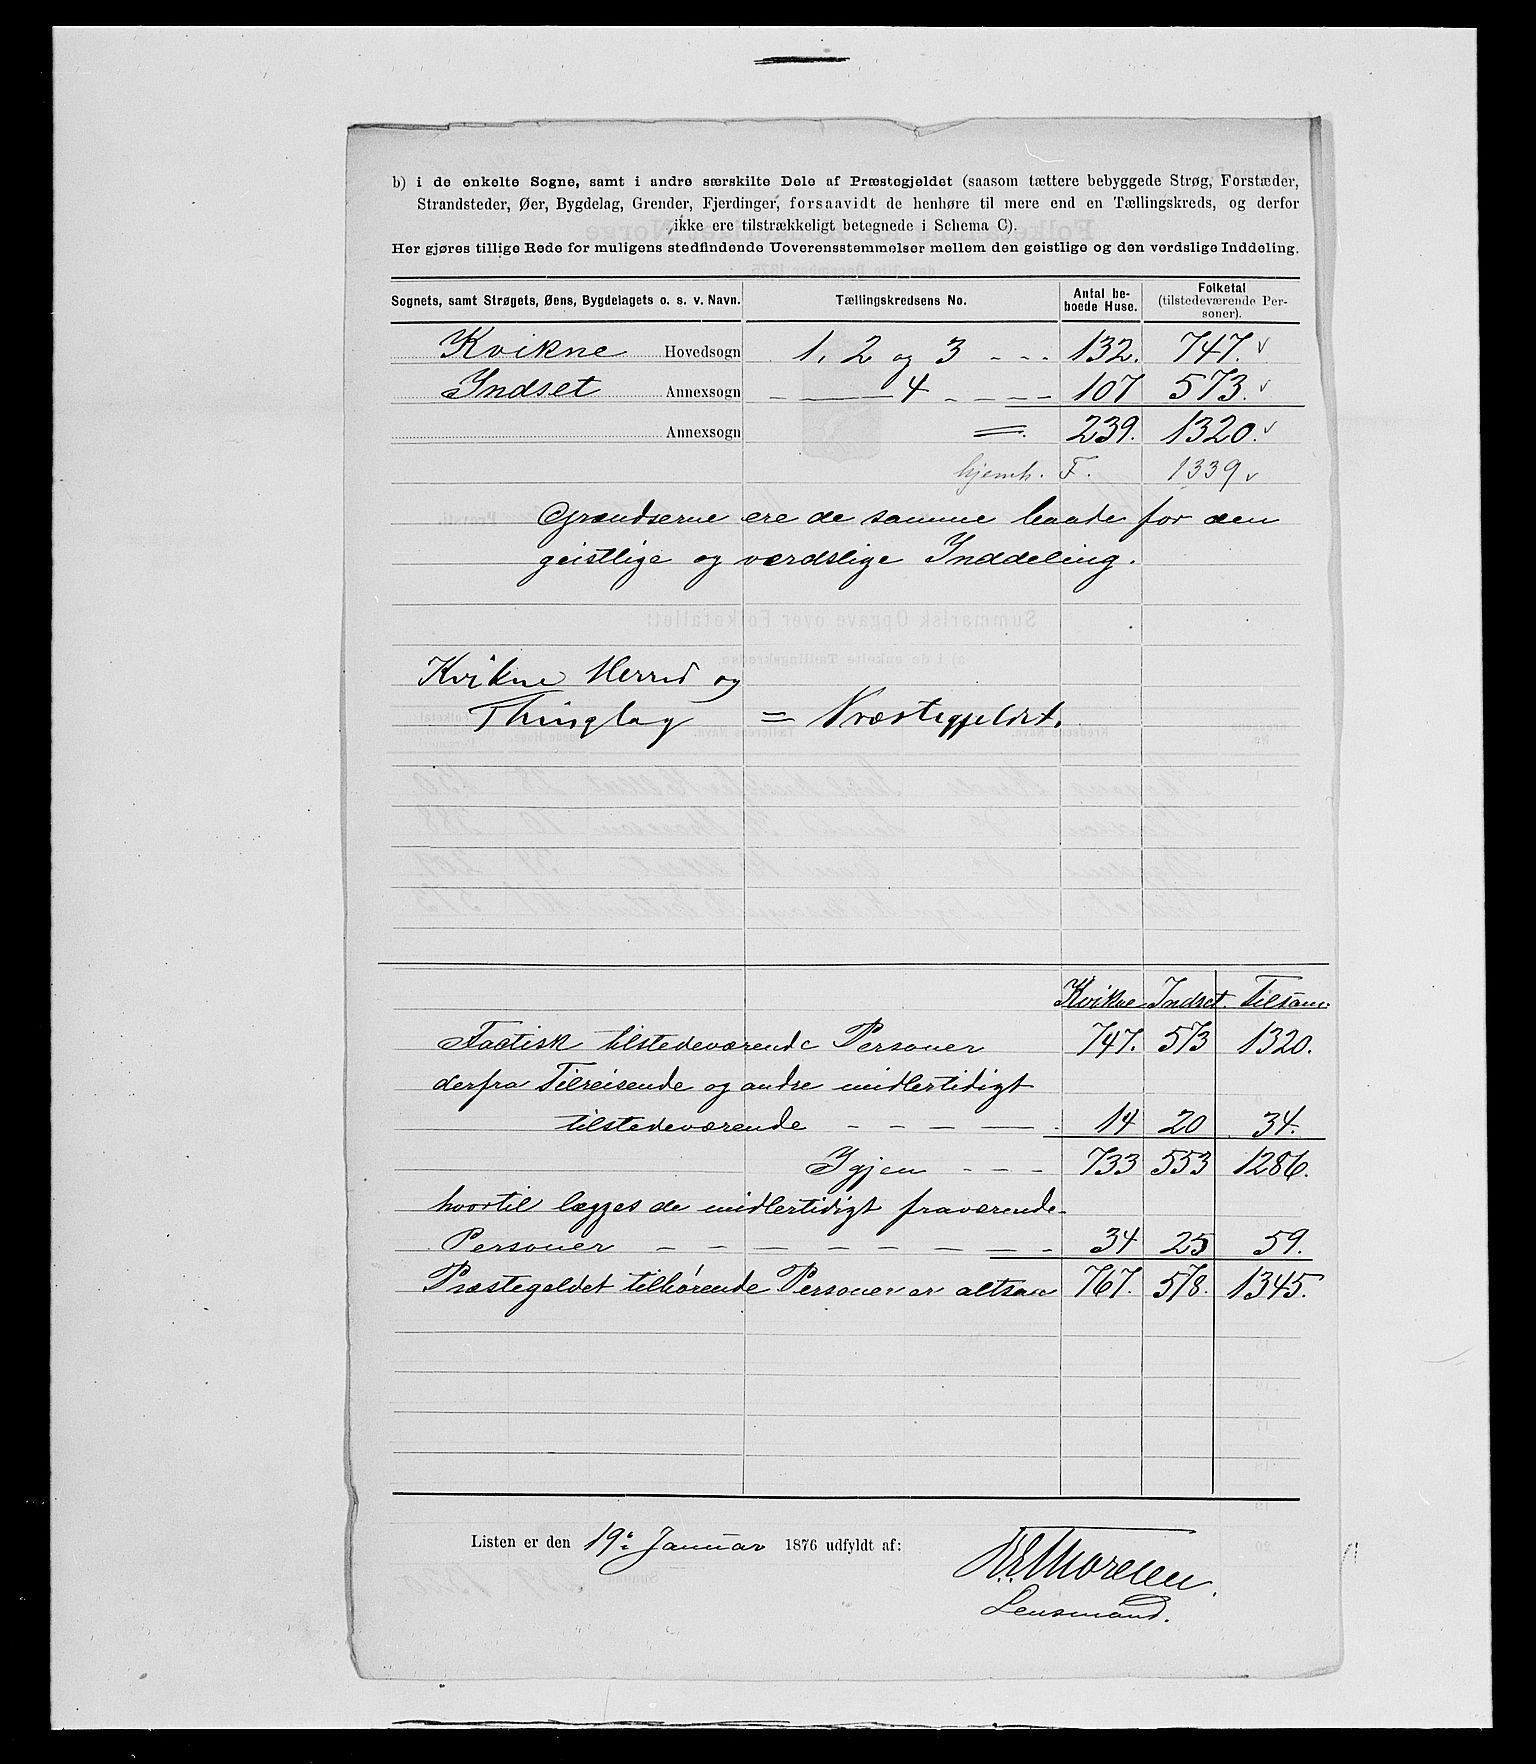 b) i de enkelte Sogne, samt i andre særskilte Dele af Præstegjeldet (saasom tættere bebyggede Strøg, Forstæder,
Strandsteder, Øer, Bygdelag, Grender, Fjerdinger, forsaavidt de henhøre til mere end en Tællingskreds, og derfor
ikke ere tilstrækkeligt betegnede i Schema C).
Her gjøres tillige Rede for muligens stedfindende Uoverensstemmelser mellem den geistlige og den verdslige Inddeling.
Sognets, samt Strøgets, Øens, Bygdelagets o. s. v. Navn. Tællingskredsens No. Antal beboede Huse. Folketal (tilstedeværende Personer).
Kvikne Hovedsogn 1, 2 og 3 - - - 132. 747. v
Indset Annexsogn 4 - - - - 107 573. v
Annexsogn = 239. 1320. v
hjemh. F. 1339 v
Grændserne ere de samme baade for den
geistlige og værdslige Inddeling.
Kvikne Herred og
Thinglag = Præstegjeldet.
Kvikne Indset. Tilsam.
Factisk tilstedeværende Personer 747. 573 1320.
derfra Tilreisende og andre midlertidigt
tilstedeværende - - - - 14 20 34.
Igjen - - - 733 553 1286.
hvortil lægges de midlertidigt fraværende
Personer - - - - - - - - - 34 25 59.
Præstegeldet tilhørende Personer er altsaa 767. 578. 1345.
Listen er den 19de Januar 1876 udfyldt af:
Lensmand.